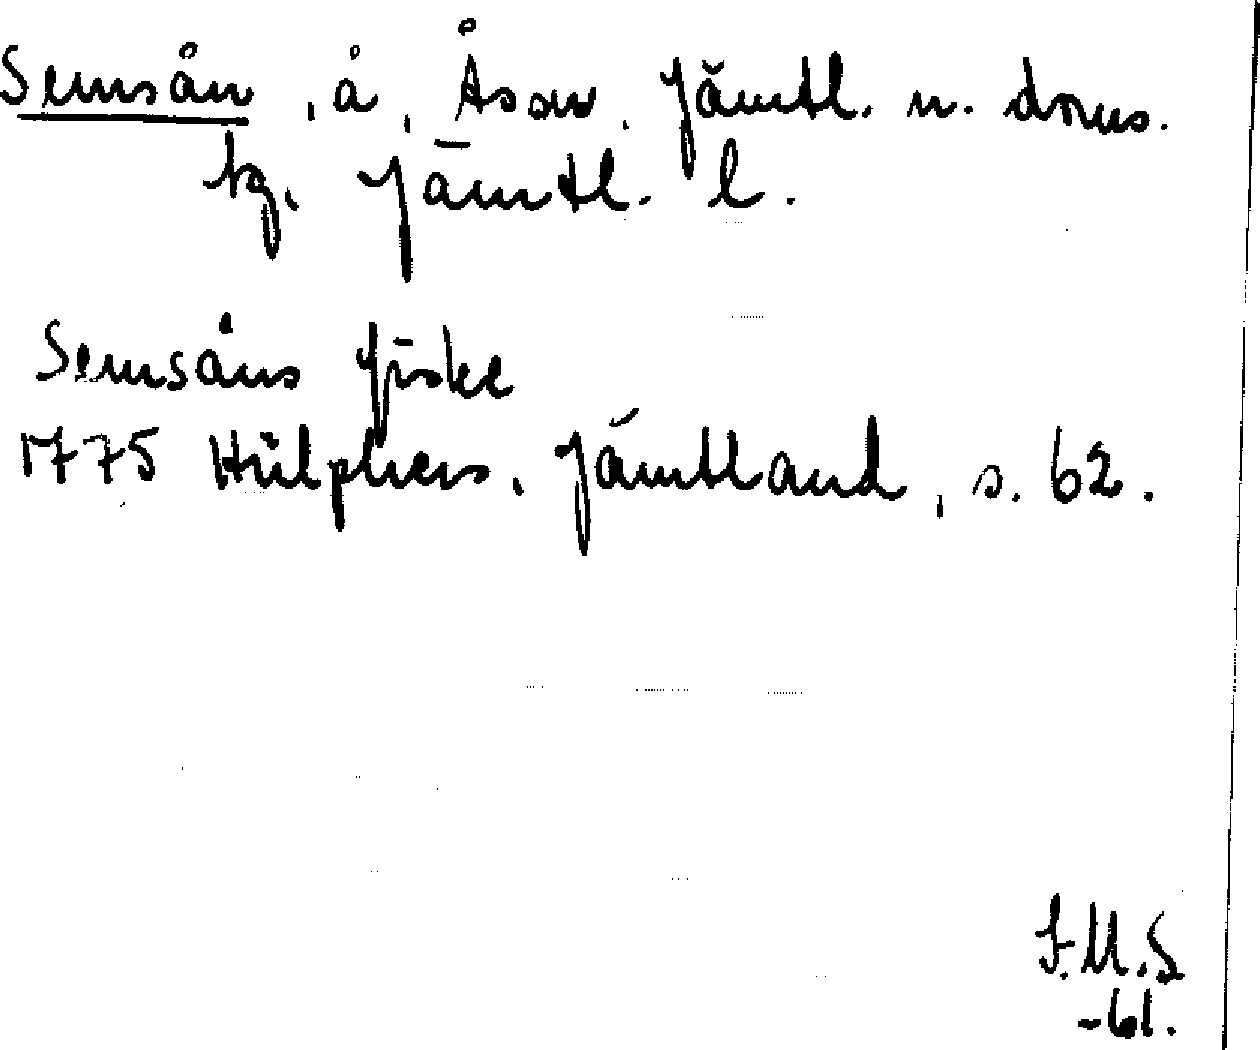 Semsån, å, Åsov. Jämtl. n. doms.
tg, Jämtl. l.
Semsåns fiske
1775 Hülphers, Jämtland, s. 62.
J.M.S
-61.